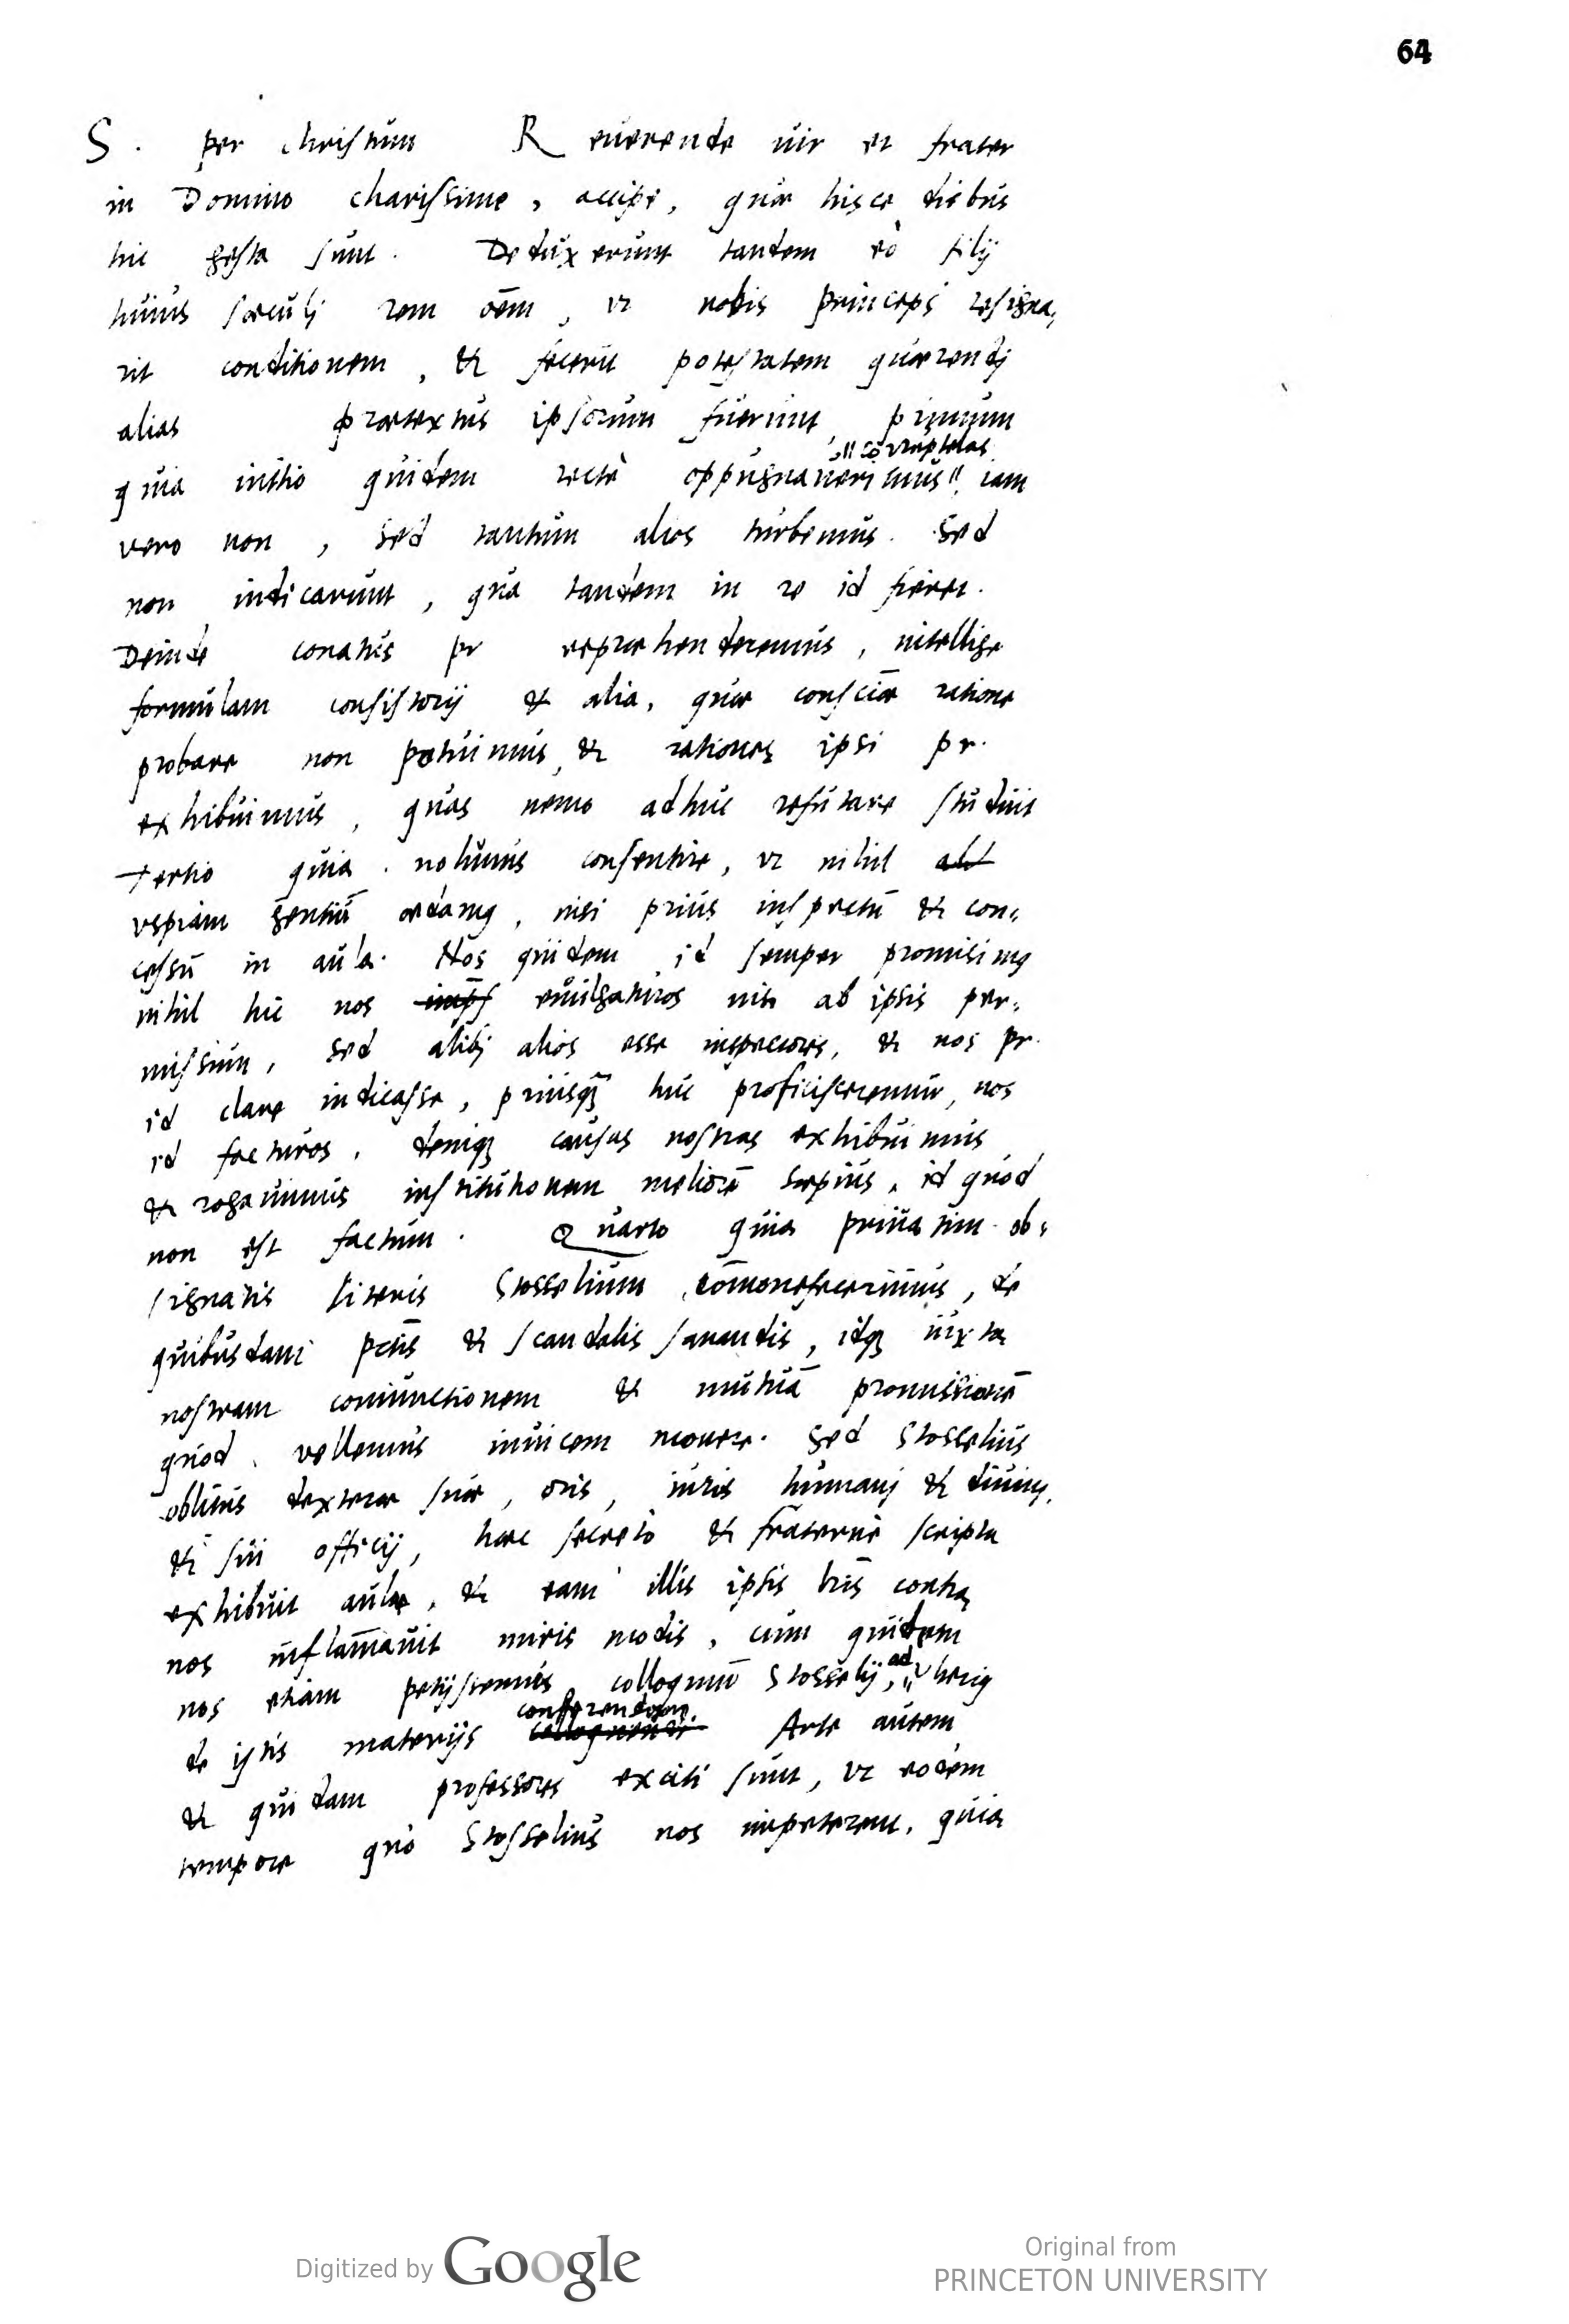 64
S. per christum Reuerende uir et frater
in Domino charissime, accipe, quæ hisce diebus
hic gesta sunt. Deduxerunt tandem eò filij
huius sæculj rem oēm, vt nobis princeps resigna,
rit conditionem, & fecerit potestatem quærendj
alias prætextus ipsorum fuerunt, primum
quia initio quidem rectè oppugnauerimus corruptelas, iam
vero non, sed tantum alios turbemus. Sed
non indicarunt, qua tandem in re id fieret.
Deinde conatus pr repræhenderemus, intellige
formulam consistorij & alia, quæ consciæ ratione
probare non potuimus, & rationes ipsi pr.
exhibuimus, quas nemo adhuc refutare studuit
Tertio quia nolumus consentire, vt nihil
vspiam gentiū, nisi prius inspectū & con:
cessū in aula. Nos quidem id semper promisimus
nihil hic nos euulgaturos nisi ab ipsis per:
missum, sed alibj alios esse inspectores, & nos pr.
id clare indicasse, priusq huc proficisceremur, nos
id facturos, deniq causas nostras exhibuimus
& rogauimus institutionem meliorē sæpius, id quod
non est factum. Quarto quia priuatim ob:
signatis literis Stosselium cōmonefecerimus, de
quibusdam pctīs & scandalis sanandis, idq iuxta
nostram coniunctionem & mutuā promissionē
quod vellemus inuicem monere. Sed Stosselius
oblitus dexteræ suæ, oris, iuris humanj & diuinj,
& sui officij, hæc secretò & fraternè scripta
exhibuit aulæ, & eam illis ipsis lrīs contra
nos inflam̄auit miris modis, cum quidem
nos etiam petijssemus colloquiū Stosselij, ad
de istis materijs conferendum. Arte autem
& quidam professores exciti sunt, vt eodem
tempore quo Stosselius nos impeterent, quia
Digitized by Google
Original from
PRINCETON UNIVERSITY